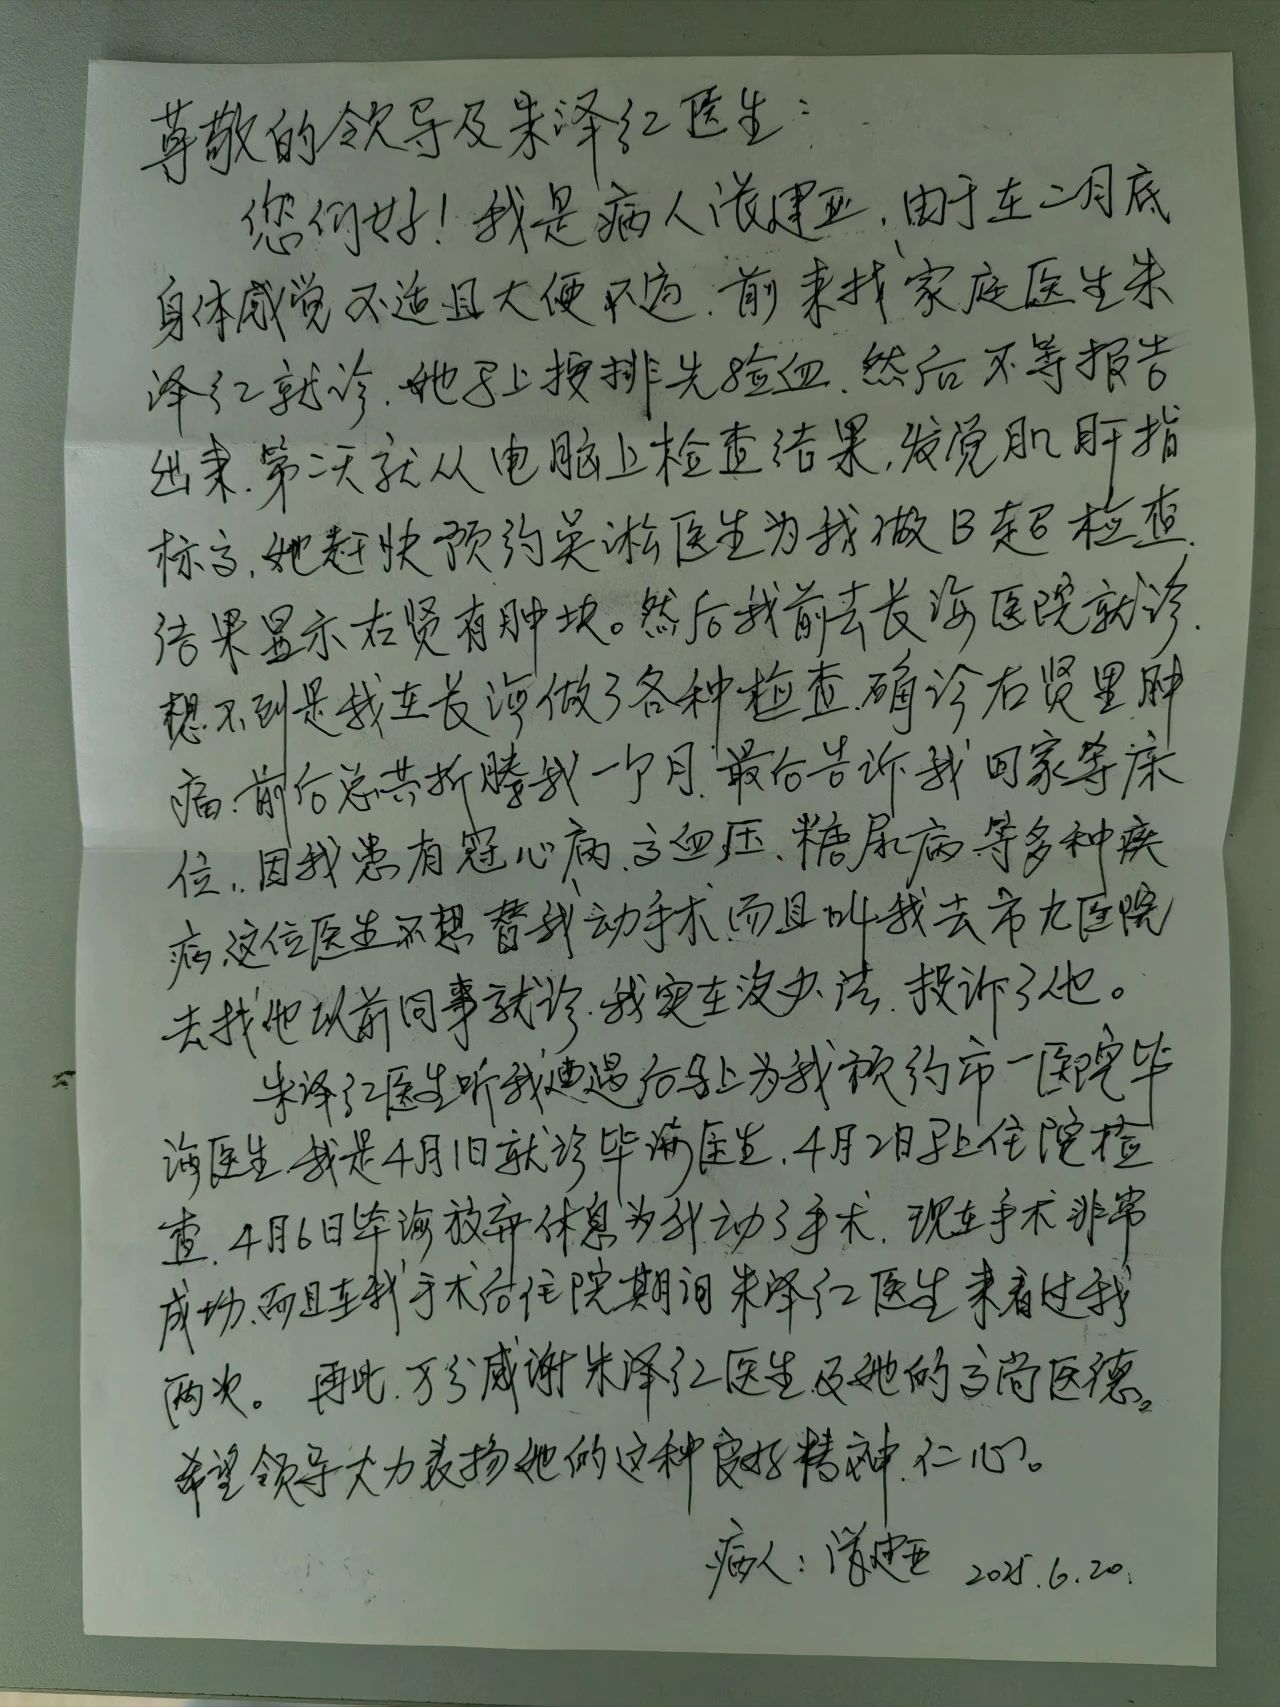 尊敬的领导及朱泽红医生：
您们好！我是病人 建亚，由于在二月底
身体感觉不适且大便不适，前来找家庭医生朱
泽红就诊，她马上按排先验血，然后不等报告
出来，第二天就从电脑上检查结果，发觉肌肝指
标高，她赶快预约吴淞医生为我做B超检查，
结果显示右贤有肿块。然后我前去长海医院就诊，
想不到是我在长海做了各种检查，确诊右贤里肿
瘤，前后总共折腾我一个月，最后告诉我回家等床
位，因我患有冠心病、高血压、糖尿病等多种疾
病，这位医生不想替我动手术，而且叫我去市九医院
去找他以前同事就诊，我实在没办法，投诉了他。
朱泽红医生听我遭遇后马上为我预约市一医院毕
海医生，我是4月1日就诊毕海医生，4月2日马上住院检
查，4月6日毕海放弃休息为我动了手术，现在手术非常
成功，而且在我手术后住院期间朱泽红医生来看过我
两次。再此，万分感谢朱泽红医生及她的高尚医德。
希望领导大力表扬她的这种良好精神，仁心。
病人： 建亚 2025.6.20.